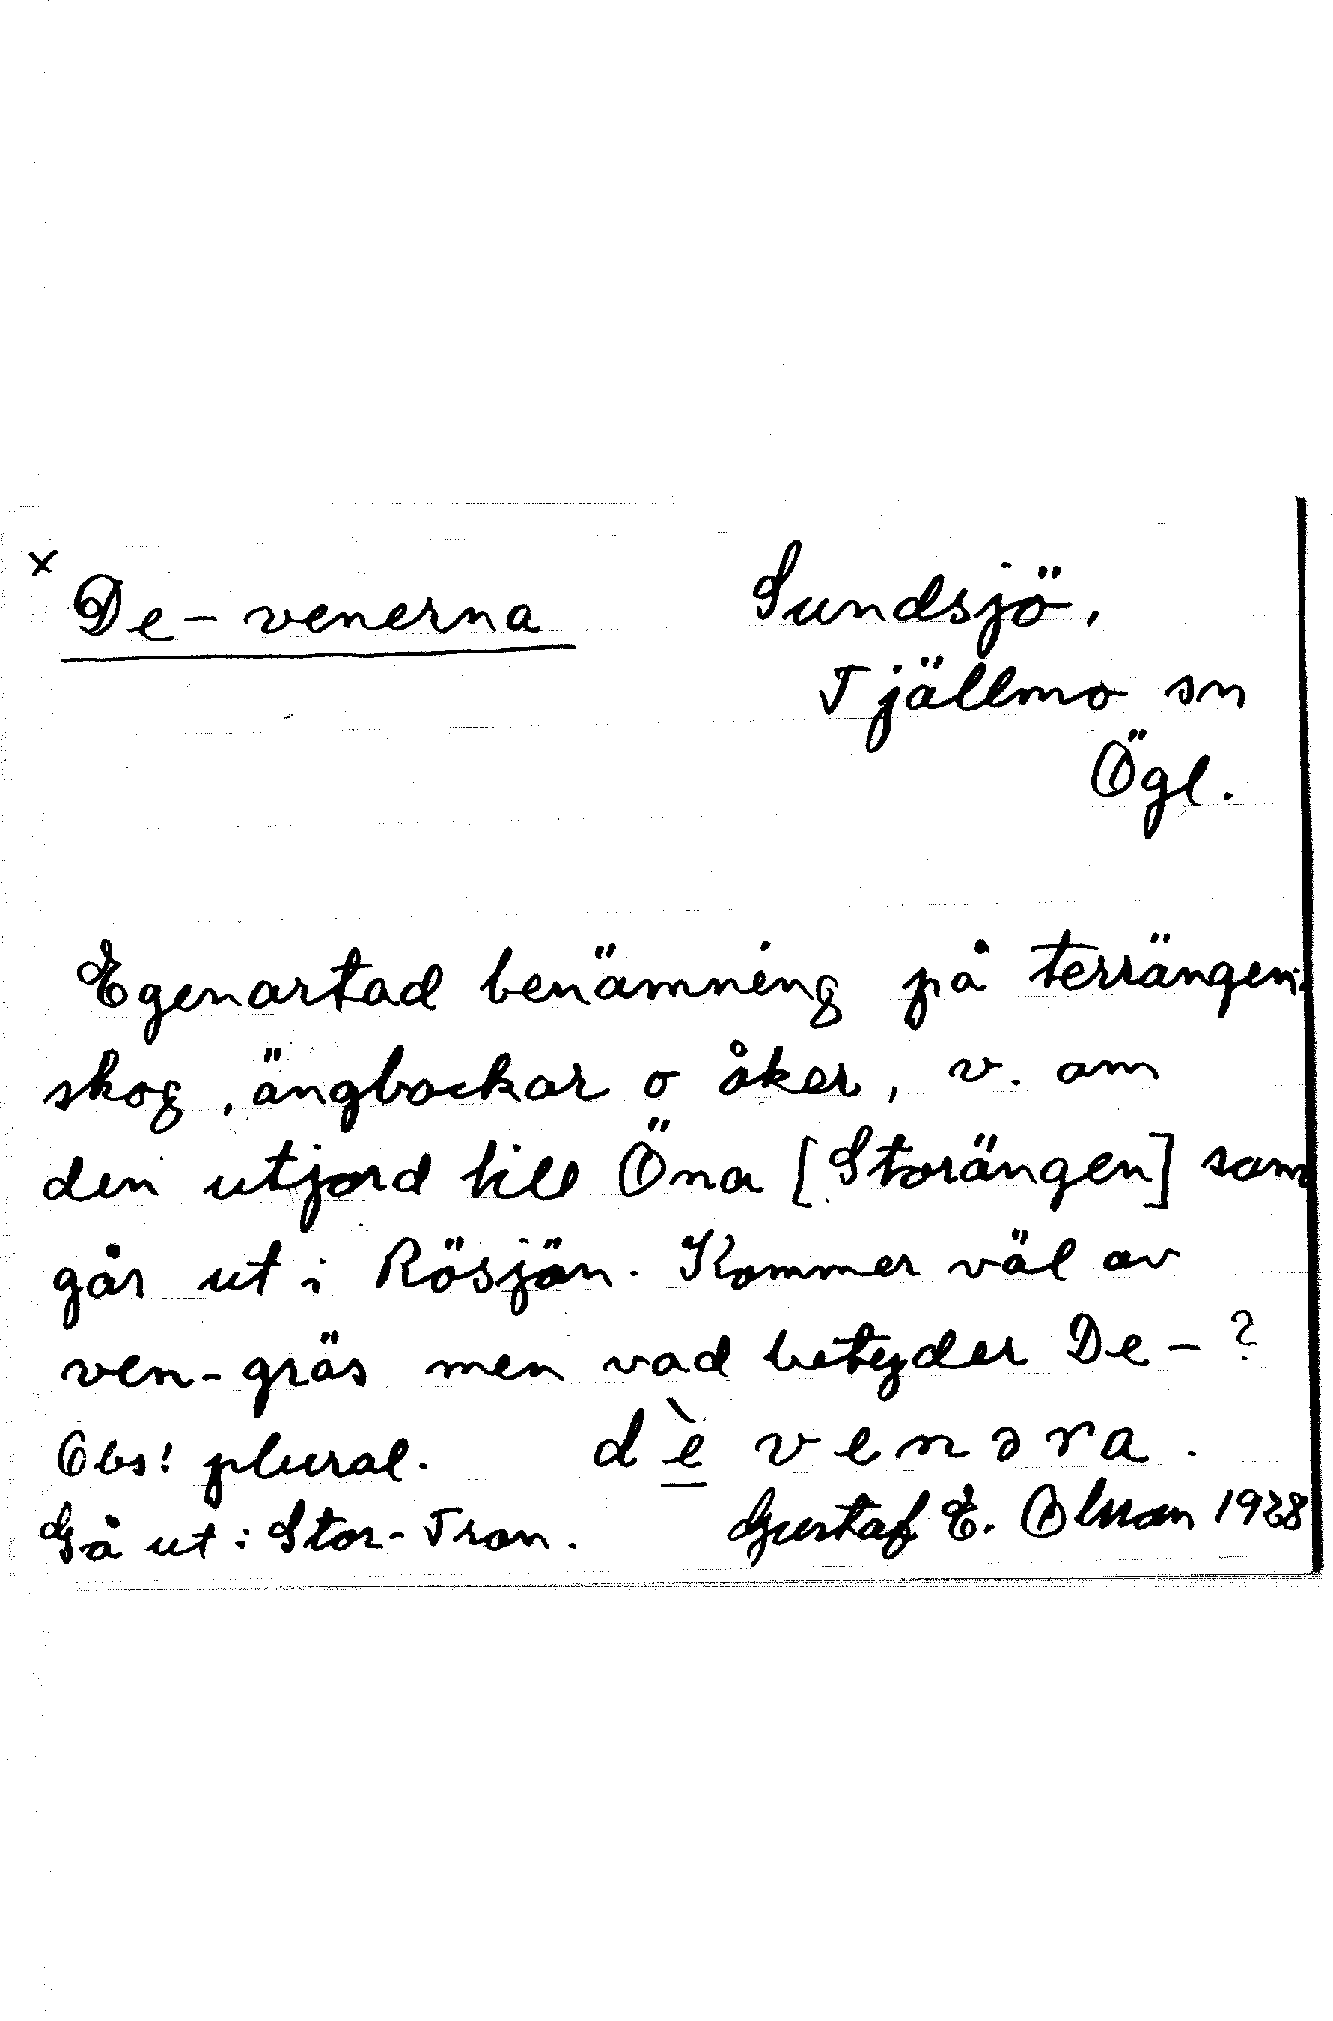 x De-venerna
Sundsjö,
Tjällmo sn
Ögl.
Egenartad benämning på terrängen:
skog, ängbackar o åker, v. om
den utjord till Öna [Storängen] som
går ut i Rösjön. Kommer väl av
ven-gräs men vad betyder De-?
Obs! plural. dè venəra.
Gå ut i Stor-Tron. Gustaf E. Olsson 1928